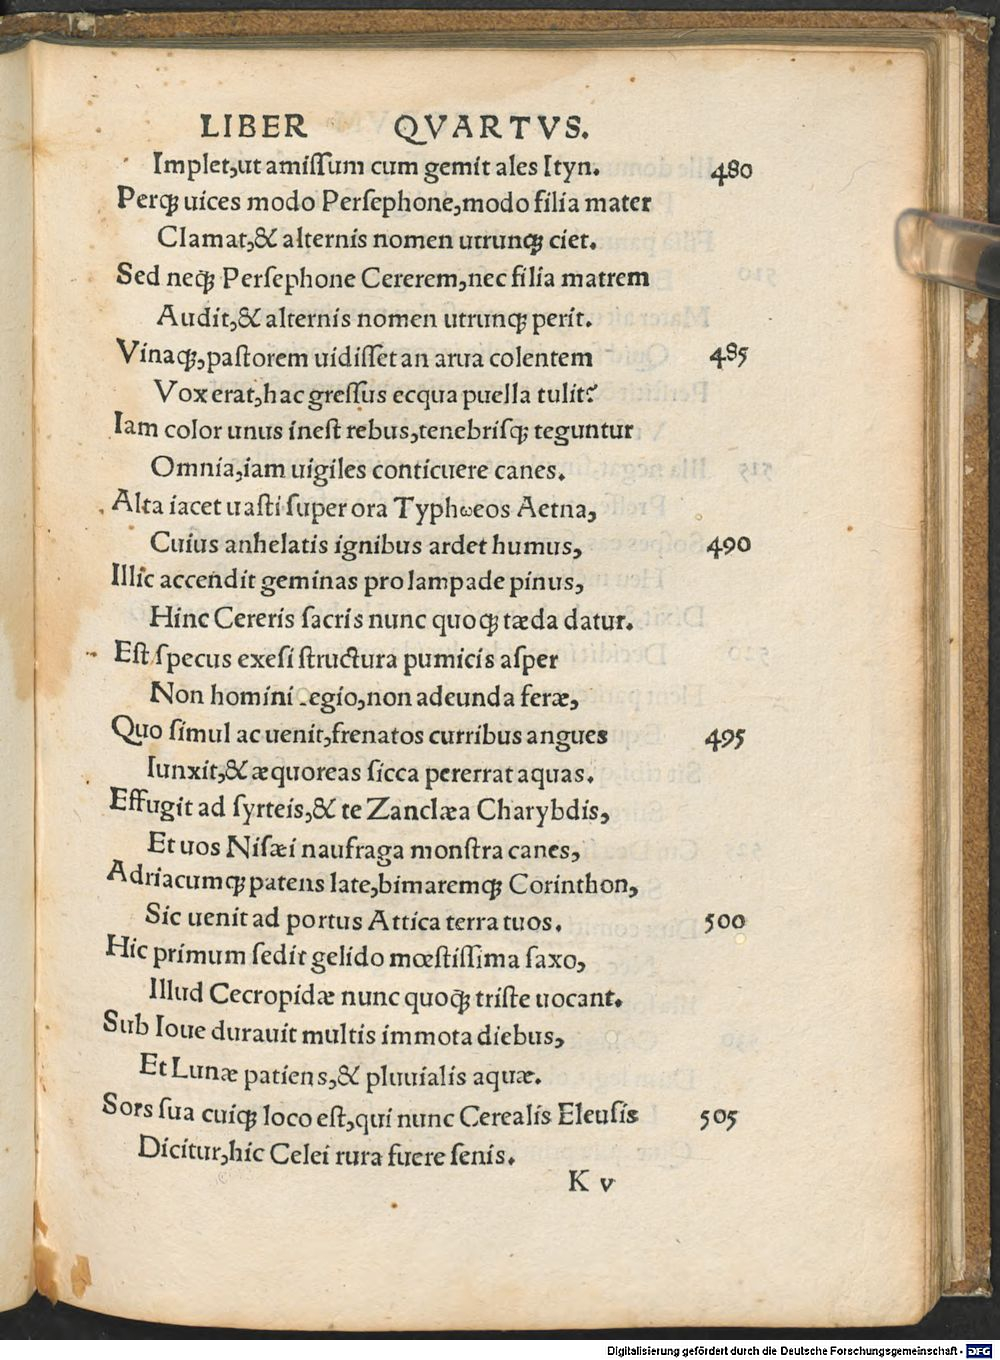 LIBER QVARTVS.
Implet,ut amiſſum cum gemit ales Ityn. 480
Perq; uices modo Perſephone,modo filia mater
Clamat,& alternis nomen utrunq; ciet.
Sed neq; Perſephone Cererem,nec filia matrem
Audit,& alternis nomen utrunq; perit.
Vinaq;,paſtorem uidiſſet an arua colentem 485
Vox erat,hac greſſus ecqua puella tulit?
Iam color unus ineſt rebus,tenebriſq; teguntur
Omnia,iam uigiles conticuere canes.
Alta iacet uaſti ſuper ora Typhωeos Aetna,
Cuius anhelatis ignibus ardet humus, 490
Illic accendit geminas pro lampade pinus,
Hinc Cereris ſacris nunc quoq; tæda datur.
Eſt ſpecus exeſi ſtructura pumicis aſper
Non homini egio,non adeunda feræ,
Quo ſimul ac uenit,frenatos curribus angues 495
Iunxit,& æquoreas ſicca pererrat aquas.
Effugit ad ſyrteis,& te Zanclæa Charybdis,
Et uos Niſæi naufraga monſtra canes,
Adriacumq; patens late,bimaremq; Corinthon,
Sic uenit ad portus Attica terra tuos. 500
Hic primum ſedit gelido mœſtiſſima ſaxo,
Illud Cecropidæ nunc quoq; triſte uocant.
Sub Ioue durauit multis immota diebus,
Et Lunæ patiens,& pluuialis aquæ.
Sors ſua cuiq; loco eſt,qui nunc Cerealis Eleuſis 505
Dicitur,hic Celei rura fuere ſenis.
K v
Digitalisierung gefördert durch die Deutsche Forschungsgemeinschaft - DFG